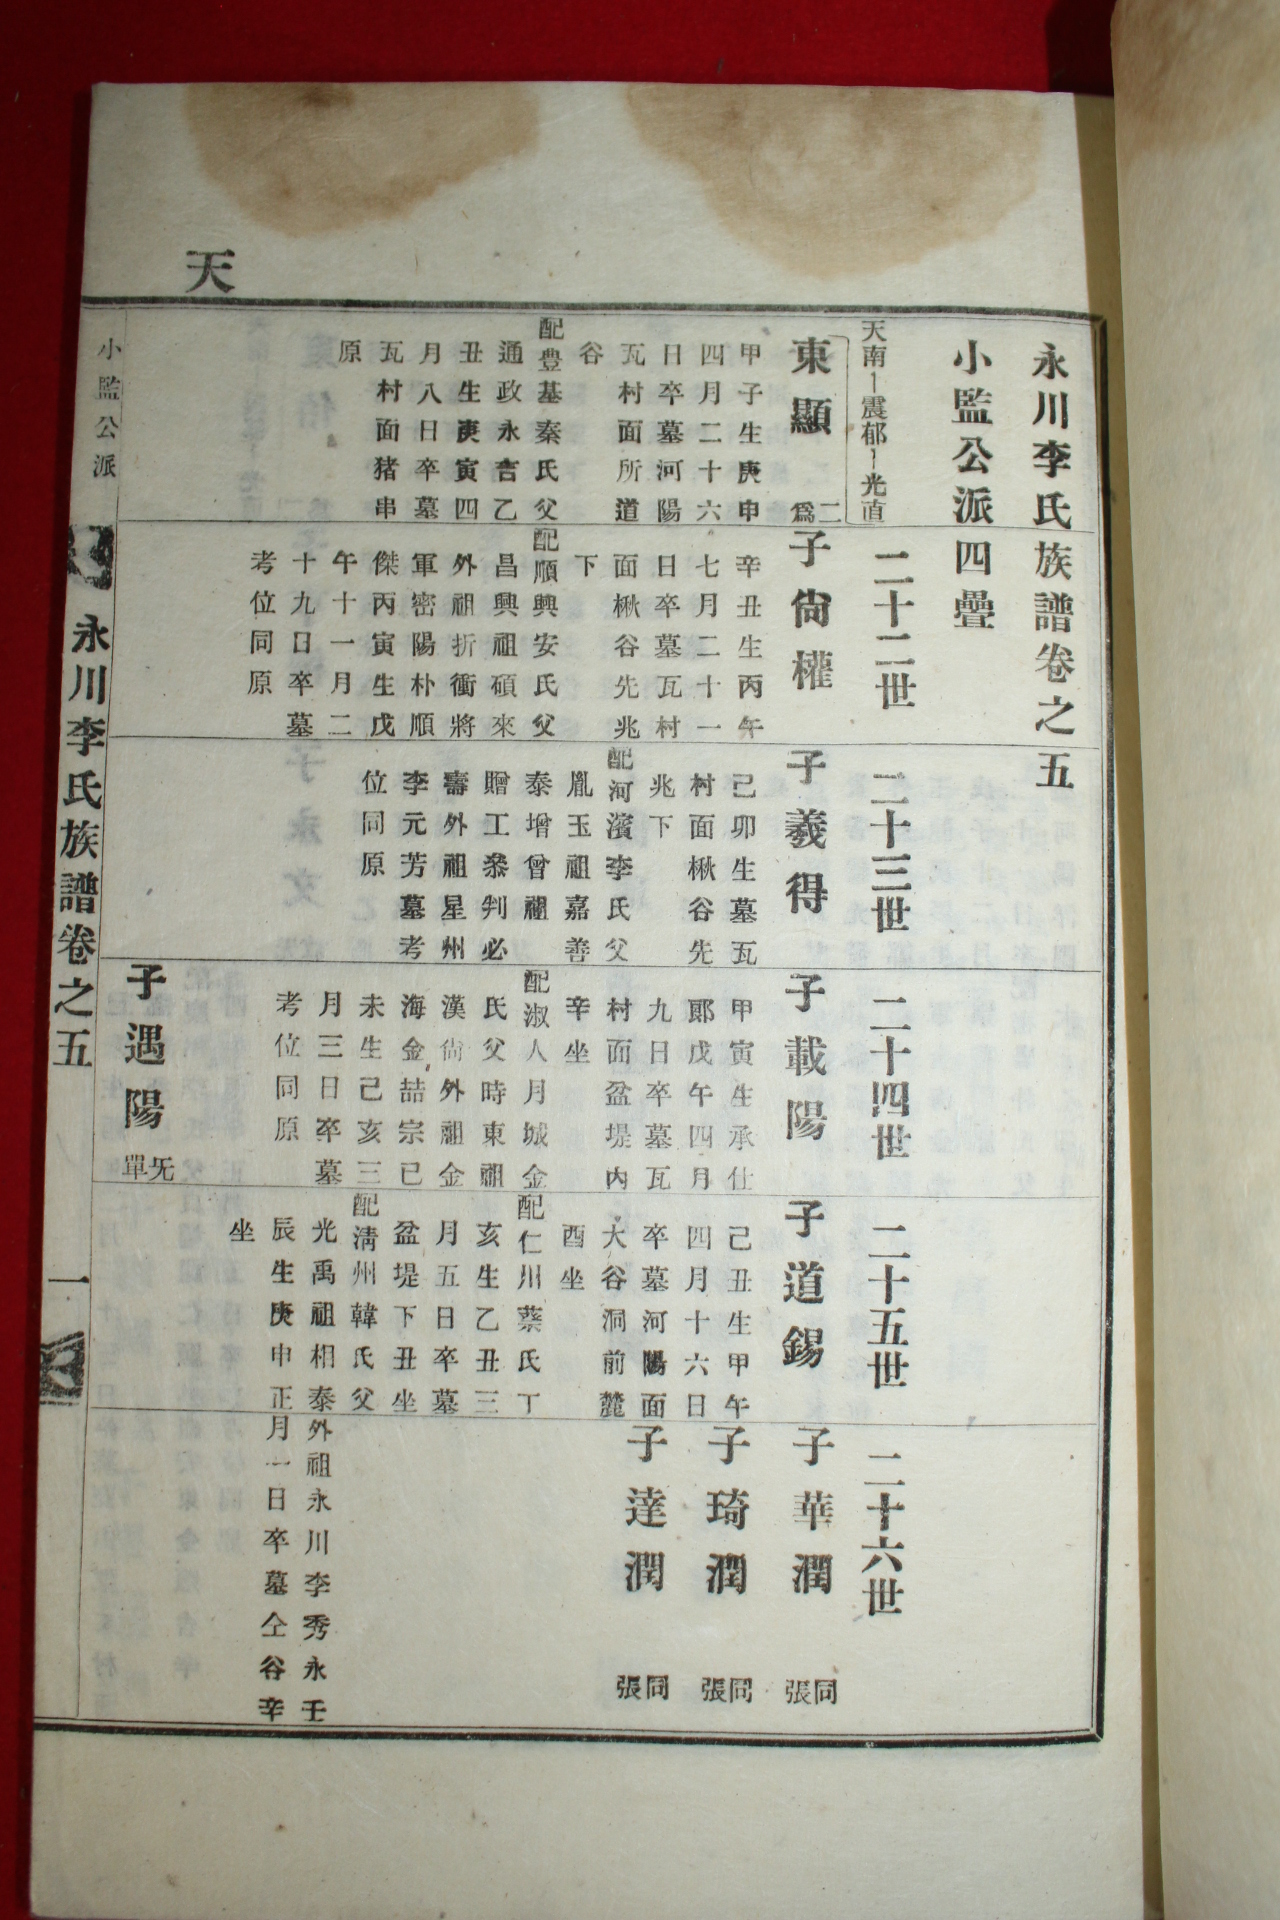 天
永川李氏族譜卷之五
小監公派四疊
天南ー震郁ー光直
東顯
二爲
甲子生庚申
四月二十六
日卒墓河陽
瓦村面所道
谷
配豊基秦氏父
通政永吉乙
丑生庚寅四
月八日卒墓
瓦村面猪串
原
二十二世
子尙權
辛丑生丙午
七月二十一
日卒墓瓦村
面楸谷先兆
下
配順興安氏父
昌興祖碩來
外祖折衝將
軍密陽朴順
傑丙寅生戊
午十一月二
十九日卒墓
考位同原
二十三世
子義得
己卯生墓瓦
村面楸谷先
兆下
配河濱李氏父
胤玉祖嘉善
泰增曾祖
贈工叅判必
壽外祖星州
李元芳墓考
位同原
二十四世
子載陽
甲寅生承仕
郞戊午四月
九日卒墓瓦
村面盆堤內
辛坐
配淑人月城金
氏父時東祖
漢尙外祖金
海金喆宗己
未生己亥三
月三日卒墓
考位同原
子遇陽
旡單
二十五世
子道錫
己丑生甲午
四月十六日
卒墓河陽面
大谷洞前麓
酉坐
配仁川蔡氏丁
亥生乙丑三
月五日卒墓
盆堤下丑坐
配淸州韓氏父
光禹祖相泰
外祖永川李秀永壬
辰生庚申正
月一日卒墓仝谷辛
坐
二十六世
子華潤
同張
子琦潤
同張
子達潤
同張
小監公派
永川李氏族譜卷之五
一